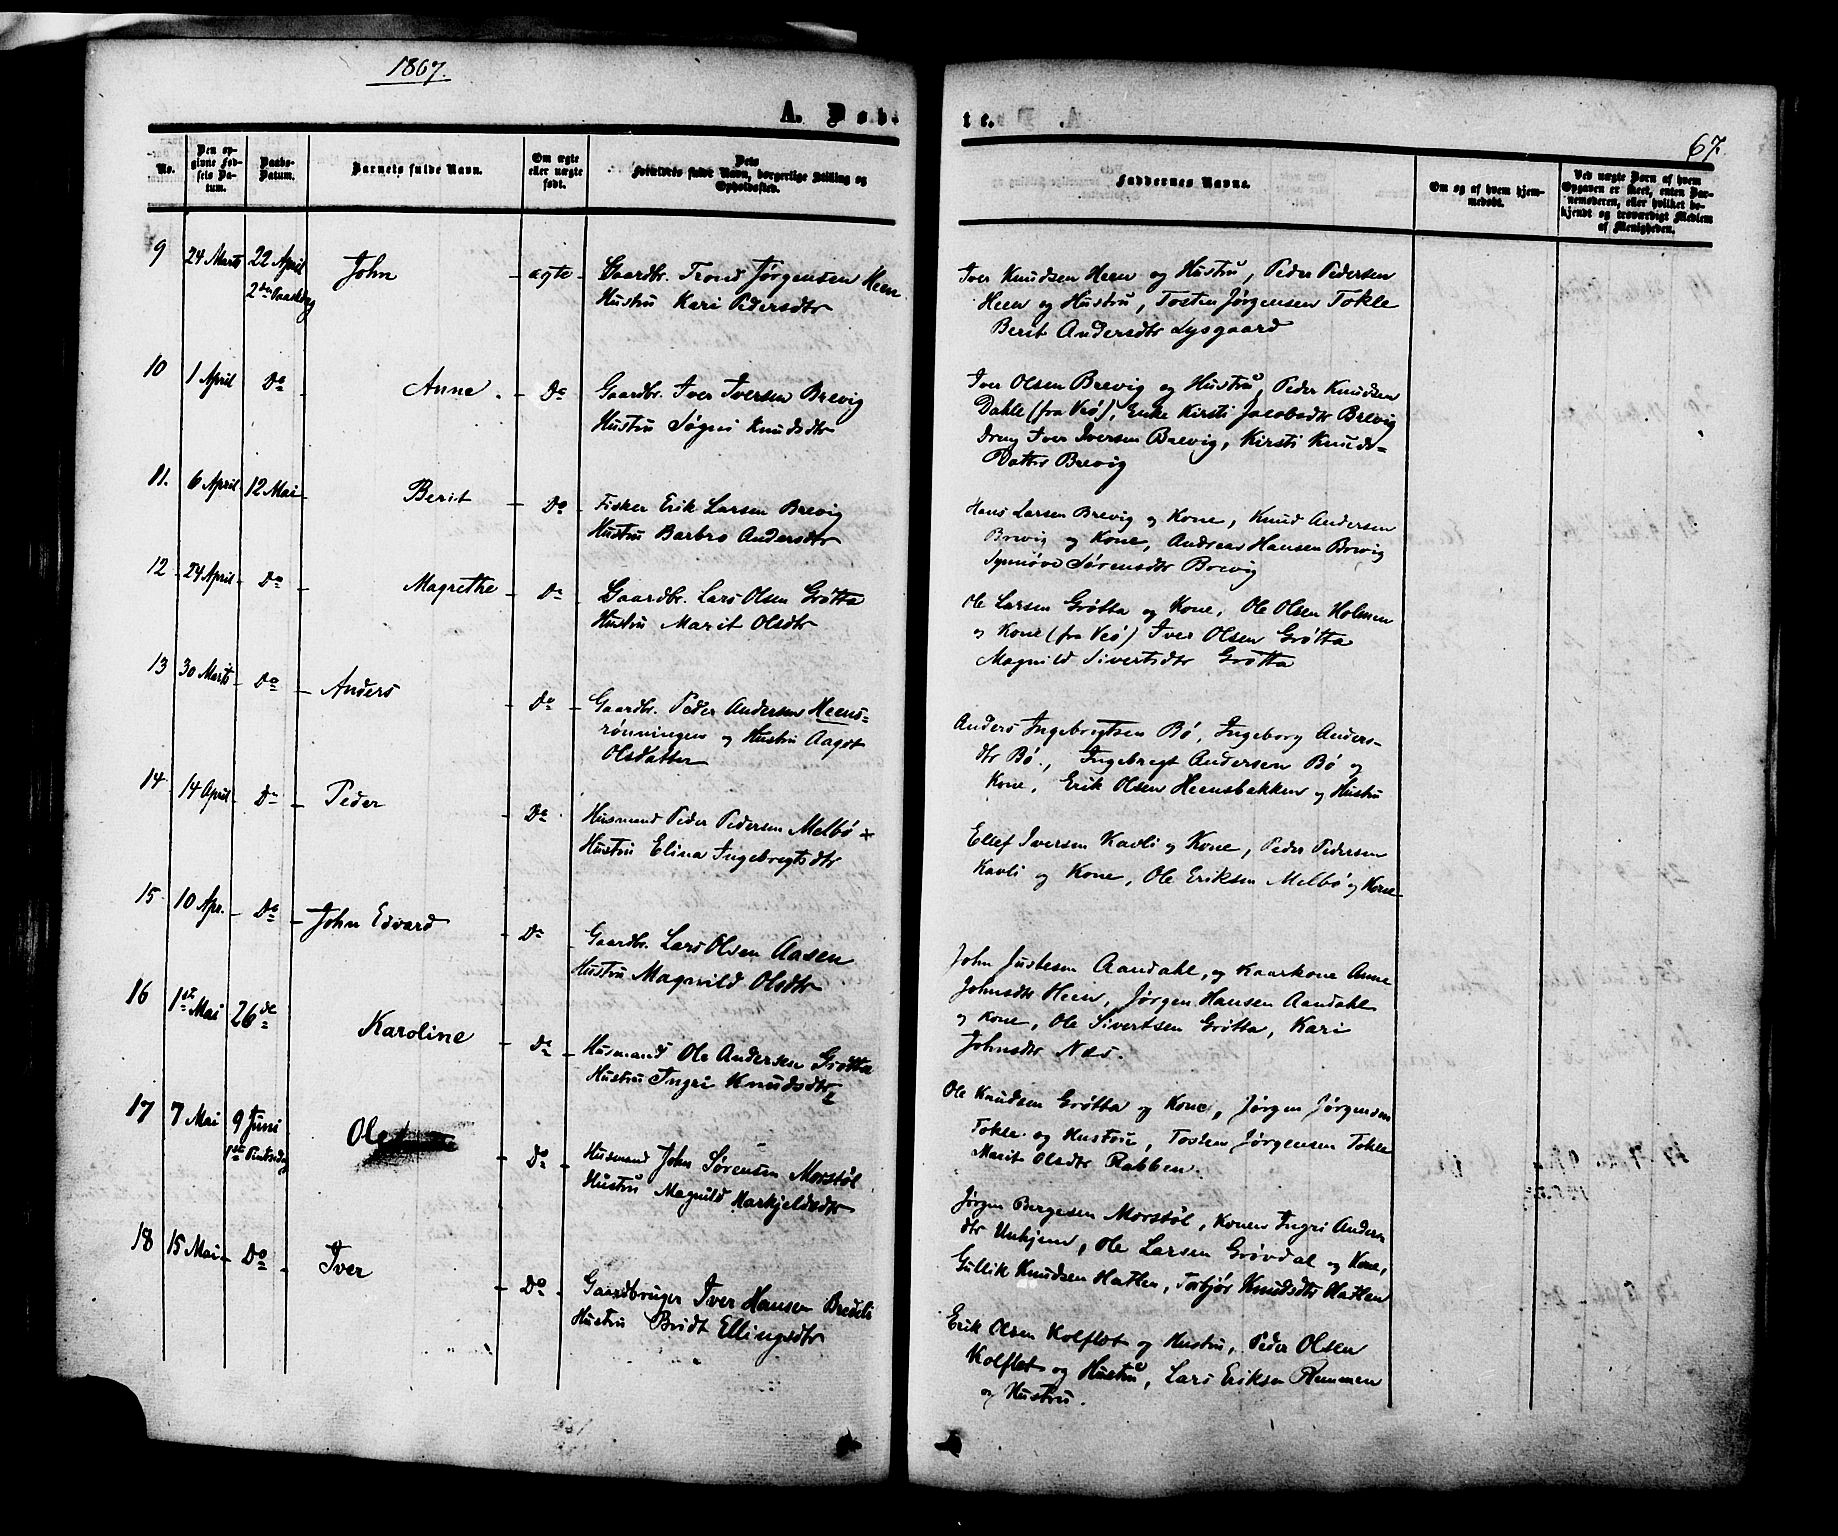 1867.
A. Døbte.
67.
No.
Den opgivne Fødsels Datum.
Daabs-Datum.
Barnets fulde Navn.
Om ægte eller uægte født.
Dets Forældres fulde Navn, borgerlige Stilling og Opholdssted.
Faddernes Navne.
Om og af hvem hjemmedøbt.
Ved uægte Børn af hvem Opgaven er skeet, enten Barnemoderen, eller hvilket bekjendt og troværdigt Medlem af Menigheden.
9 24 Marts 22 April John ægte Gaardbr. Trond Jørgensen Heen
2den Paaskedag Hustru Kari Pedersdtr
Iver Knudsen Heen og Hustru, Peder Pedersen
Heen og Hustru, Tosten Jørgensen Tokle
Berit Andersdtr Lysgaard
10 1 April Do Anne. Do Gaardbr. Iver Iversen Brevig
Hustru Søgni Knudsdtr
Iver Olsen Brevig og Hustru, Peder Knudsen
Dahle (fra Veø), Enke Kirsti Jacobsdtr Brevig
Dreng Iver Iversen Brevig, Kirsti Knuds-
Datter Brevig
11. 6 April 12 Mai Berit Do Fisker Erik Larsen Brevig
Hustru Barbro Andersdtr
Hans Larsen Brevig og Kone, Knud Andersen
Brevig og Kone, Andreas Hansen Brevig
Synnøve Sørensdtr Brevig
12 24 April Do Magrethe Do Gaardbr. Lars Olsen Grøtta
Hustru Marit Olsdtr
Ole Larsen Grøtta og Kone, Ole Olsen Holmen
og Kone (fra Veø) Iver Olsen Grøtta
Magnild Sivertsdtr Grøtta
13 30 Marts Do Anders Do Gaardbr. Peder Andersen Heens-
rønningen og Hustru Aagot
Olsdatter
Anders Ingebrigtsen Bø, Ingeborg Anders-
dtr Bø., Ingebregt Andersen Bø og
Kone, Erik Olsen Heensbakken og Hustru
14 14 April Do Peder Do Husmand Peder Pedersen Melbø
Hustru Elina Ingebregtsdtr
Ellef Iversen Kavli og Kone, Peder Pedersen
Kavli og Kone, Ole Eriksen Melbø og Kone
15 10 Apr. Do John Edvard Do Gaardbr. Lars Olsen Aasen
Hustru Magnild Olsdtr
John Justesen Aandahl, og Kaarkone Anne
Johnsdtr Heen, Jørgen Hansen Aandahl
og Kone, Ole Sivertsen Grøtta, Kari
Johnsdtr Næs.
16 1st Mai 26de Karoline Do Husmand Ole Andersen Grøtta
Hustru Ingri Knudsdtr
Ole Knudsen Grøtta og Kone, Jørgen Jørgensen
Tokle og Hustru, Tosten Jørgensen Tokle
Marit Olsdtr Rabben.
17 7 Mai 9 Juni Ole Do Husmand John Sørensen Morstøl
1st Pintsedag Hustru Magnild Harkjeldsdtr
Jørgen Bergesen Morstøl, Konen Ingri Anders
dtr Unhjem, Ole Larsen Grøvdal og Kone,
Gullik Knudsen Hatlen, Torbjør Knudsdtr Hatlen
18 15 Mai Do Iver Do Gaardbruger Iver Hansen
Hustru Bridt Ellingsdtr
Erik Olsen Kolflot og Hustru, Peder Olsen
Kolflot og Hustru, Lars Eriksen
og Hustru.